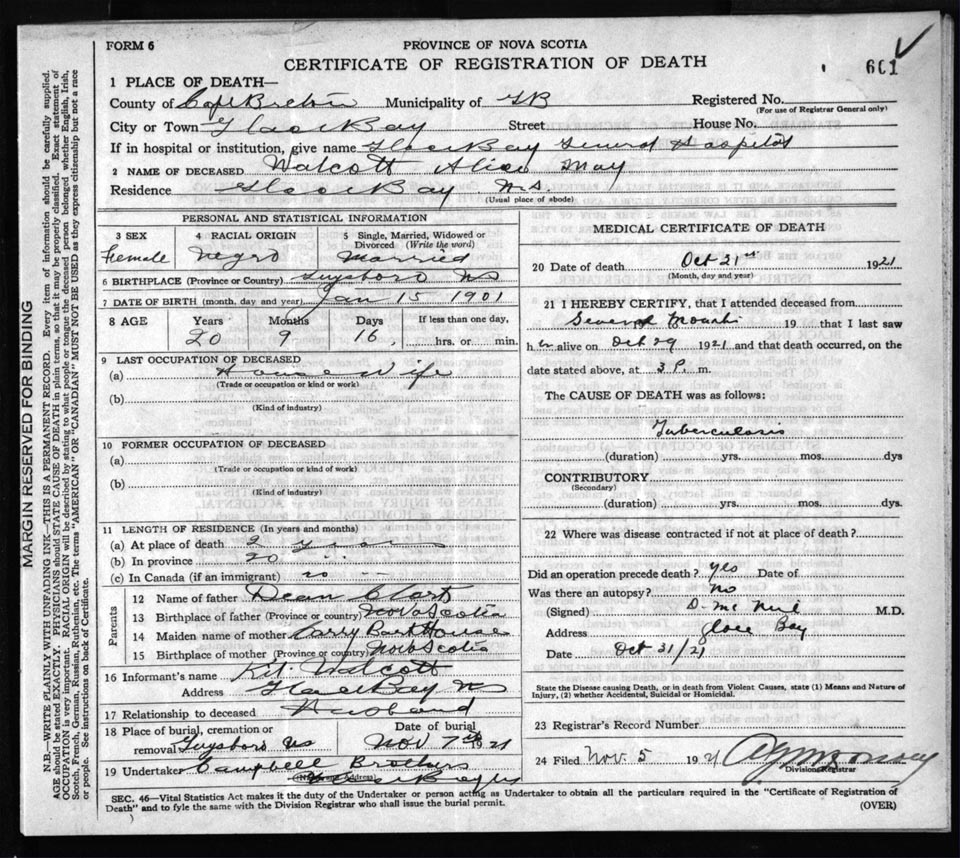 FORM 6
PROVINCE OF NOVA SCOTIA
CERTIFICATE OF REGISTRATION OF DEATH
601
1 PLACE OF DEATH—
County of Cape Breton Municipality of GB Registered No.
(For use of Registrar General only)
City or Town Glace Bay Street House No.
If in hospital or institution, give name Glace Bay General Hospital
2 NAME OF DECEASED Walcott Alice May
Residence Glace Bay N.S.
(Usual place of abode)
PERSONAL AND STATISTICAL INFORMATION
3 SEX 4 RACIAL ORIGIN 5 Single, Married, Widowed or Divorced (Write the word)
Female Negro Married
6 BIRTHPLACE (Province or Country) Guysboro NS
7 DATE OF BIRTH (month, day and year) Jan 15 1901
8 AGE Years Months Days If less than one day,
20 9 16 hrs. or min.
9 LAST OCCUPATION OF DECEASED
(a) House Wife
(Trade or occupation or kind of work)
(b)
(Kind of industry)
10 FORMER OCCUPATION OF DECEASED
(a)
(Trade or occupation or kind of work)
(b)
(Kind of industry)
11 LENGTH OF RESIDENCE (In years and months)
(a) At place of death 2 years
(b) In province 20 "
(c) In Canada (if an immigrant)
Parents
12 Name of father Dean
13 Birthplace of father (Province or country) Nova Scotia
14 Maiden name of mother
15 Birthplace of mother (Province or country) Nova Scotia
16 Informant's name Walcott
Address Glace Bay NS
17 Relationship to deceased Husband
18 Place of burial, cremation or removal Guysboro NS Date of burial Nov 7th 1921
19 Undertaker Campbell Brothers
MEDICAL CERTIFICATE OF DEATH
20 Date of death Oct 21st 1921
(Month, day and year)
21 I HEREBY CERTIFY, that I attended deceased from
Several Months 19 that I last saw
her alive on Oct 29 1921 and that death occurred, on the
date stated above, at 3 P. m.
The CAUSE OF DEATH was as follows:
Tuberculosis
(duration) yrs. mos. dys
CONTRIBUTORY
(Secondary)
(duration) yrs. mos. dys.
22 Where was disease contracted if not at place of death?
Did an operation precede death? yes Date of
Was there an autopsy? No
(Signed) D. McNeil M.D.
Address Glace Bay
Date Oct 31/21
State the Disease causing Death, or in death from Violent Causes, state (1) Means and Nature of
Injury, (2) whether Accidental, Suicidal or Homicidal.
23 Registrar's Record Number
24 Filed Nov. 5 1921
Division Registrar
SEC. 46—Vital Statistics Act makes it the duty of the Undertaker or person acting as Undertaker to obtain all the particulars required in the "Certificate of Registration of
Death" and to fyle the same with the Division Registrar who shall issue the burial permit.
(OVER)
MARGIN RESERVED FOR BINDING
N.B.—WRITE PLAINLY WITH UNFADING INK—THIS IS A PERMANENT RECORD. Every item of information should be carefully supplied.
AGE should be stated EXACTLY. PHYSICIANS should STATE CAUSE OF DEATH in plain terms, so that it may be properly classified. Exact statement of
OCCUPATION is very important. RACIAL ORIGIN will be described by stating to what people or tongue the deceased person belonged whether English, Irish,
Scotch, French, German, Russian, Ruthenian, etc. The terms "AMERICAN" OR "CANADIAN" MUST NOT BE USED as they express citizenship but not a race
or people. See instructions on back of Certificate.